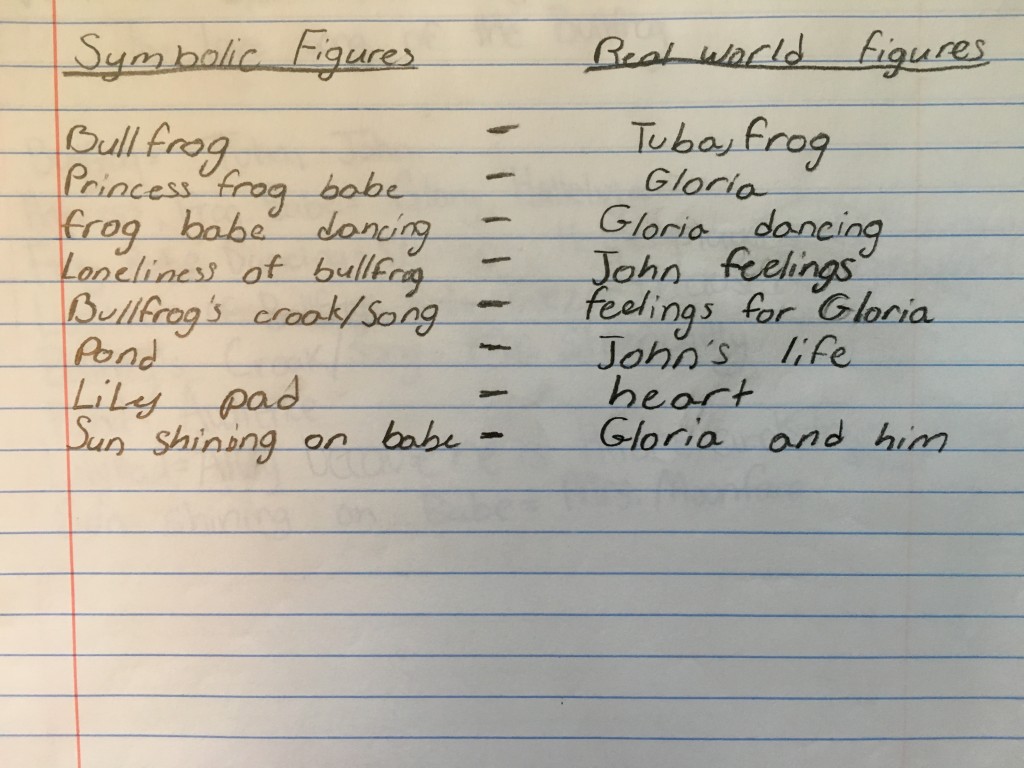 Symbolic Figures Real world figures
Bullfrog - Tuba, frog
Princess frog babe - Gloria
frog babe dancing - Gloria dancing
Loneliness of bullfrog - John feelings
Bullfrog's croak/Song - feelings for Gloria
Pond - John's life
LiLy pad - heart
Sun shining on babe - Gloria and him